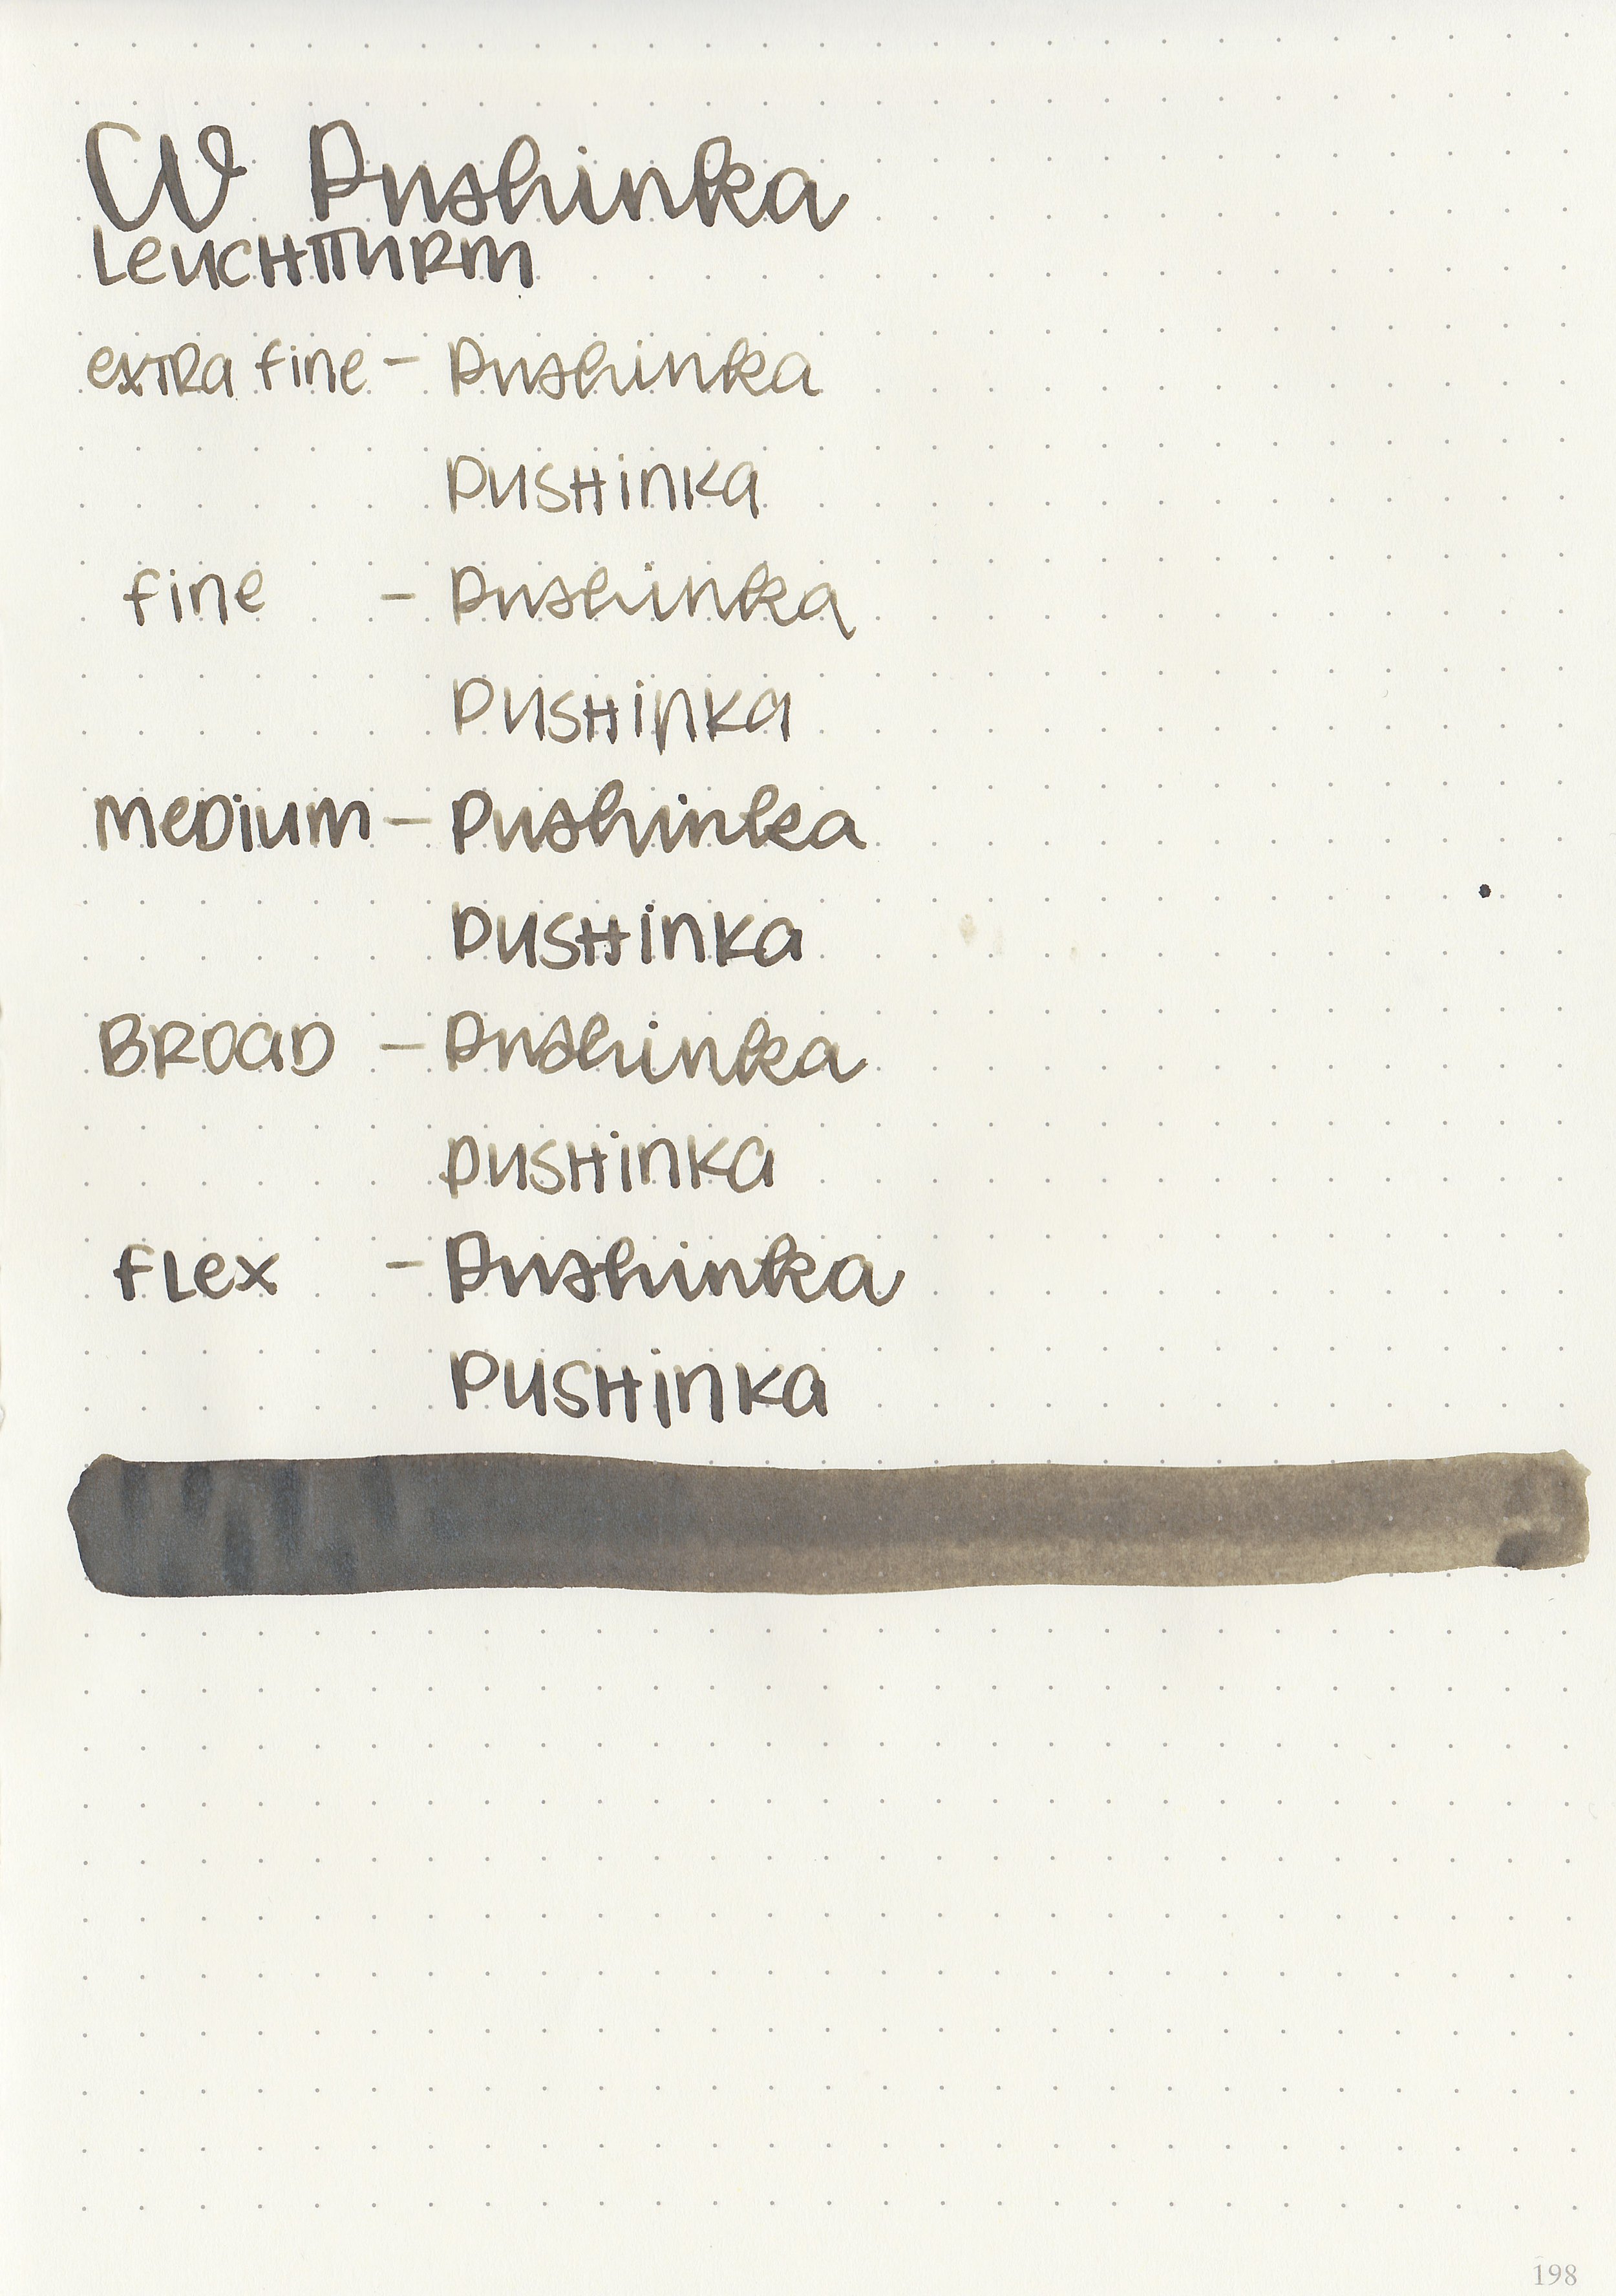 CV Pushinka
LeucHTTURM
exTRa fine - Pushinka
PUSHinKa
fine - Pushinka
PUSHinKa
MeDium - Pushinka
PUSHinKa
BROaD - Pushinka
PUSHinKa
fLex - Pushinka
PUSHinKa
198